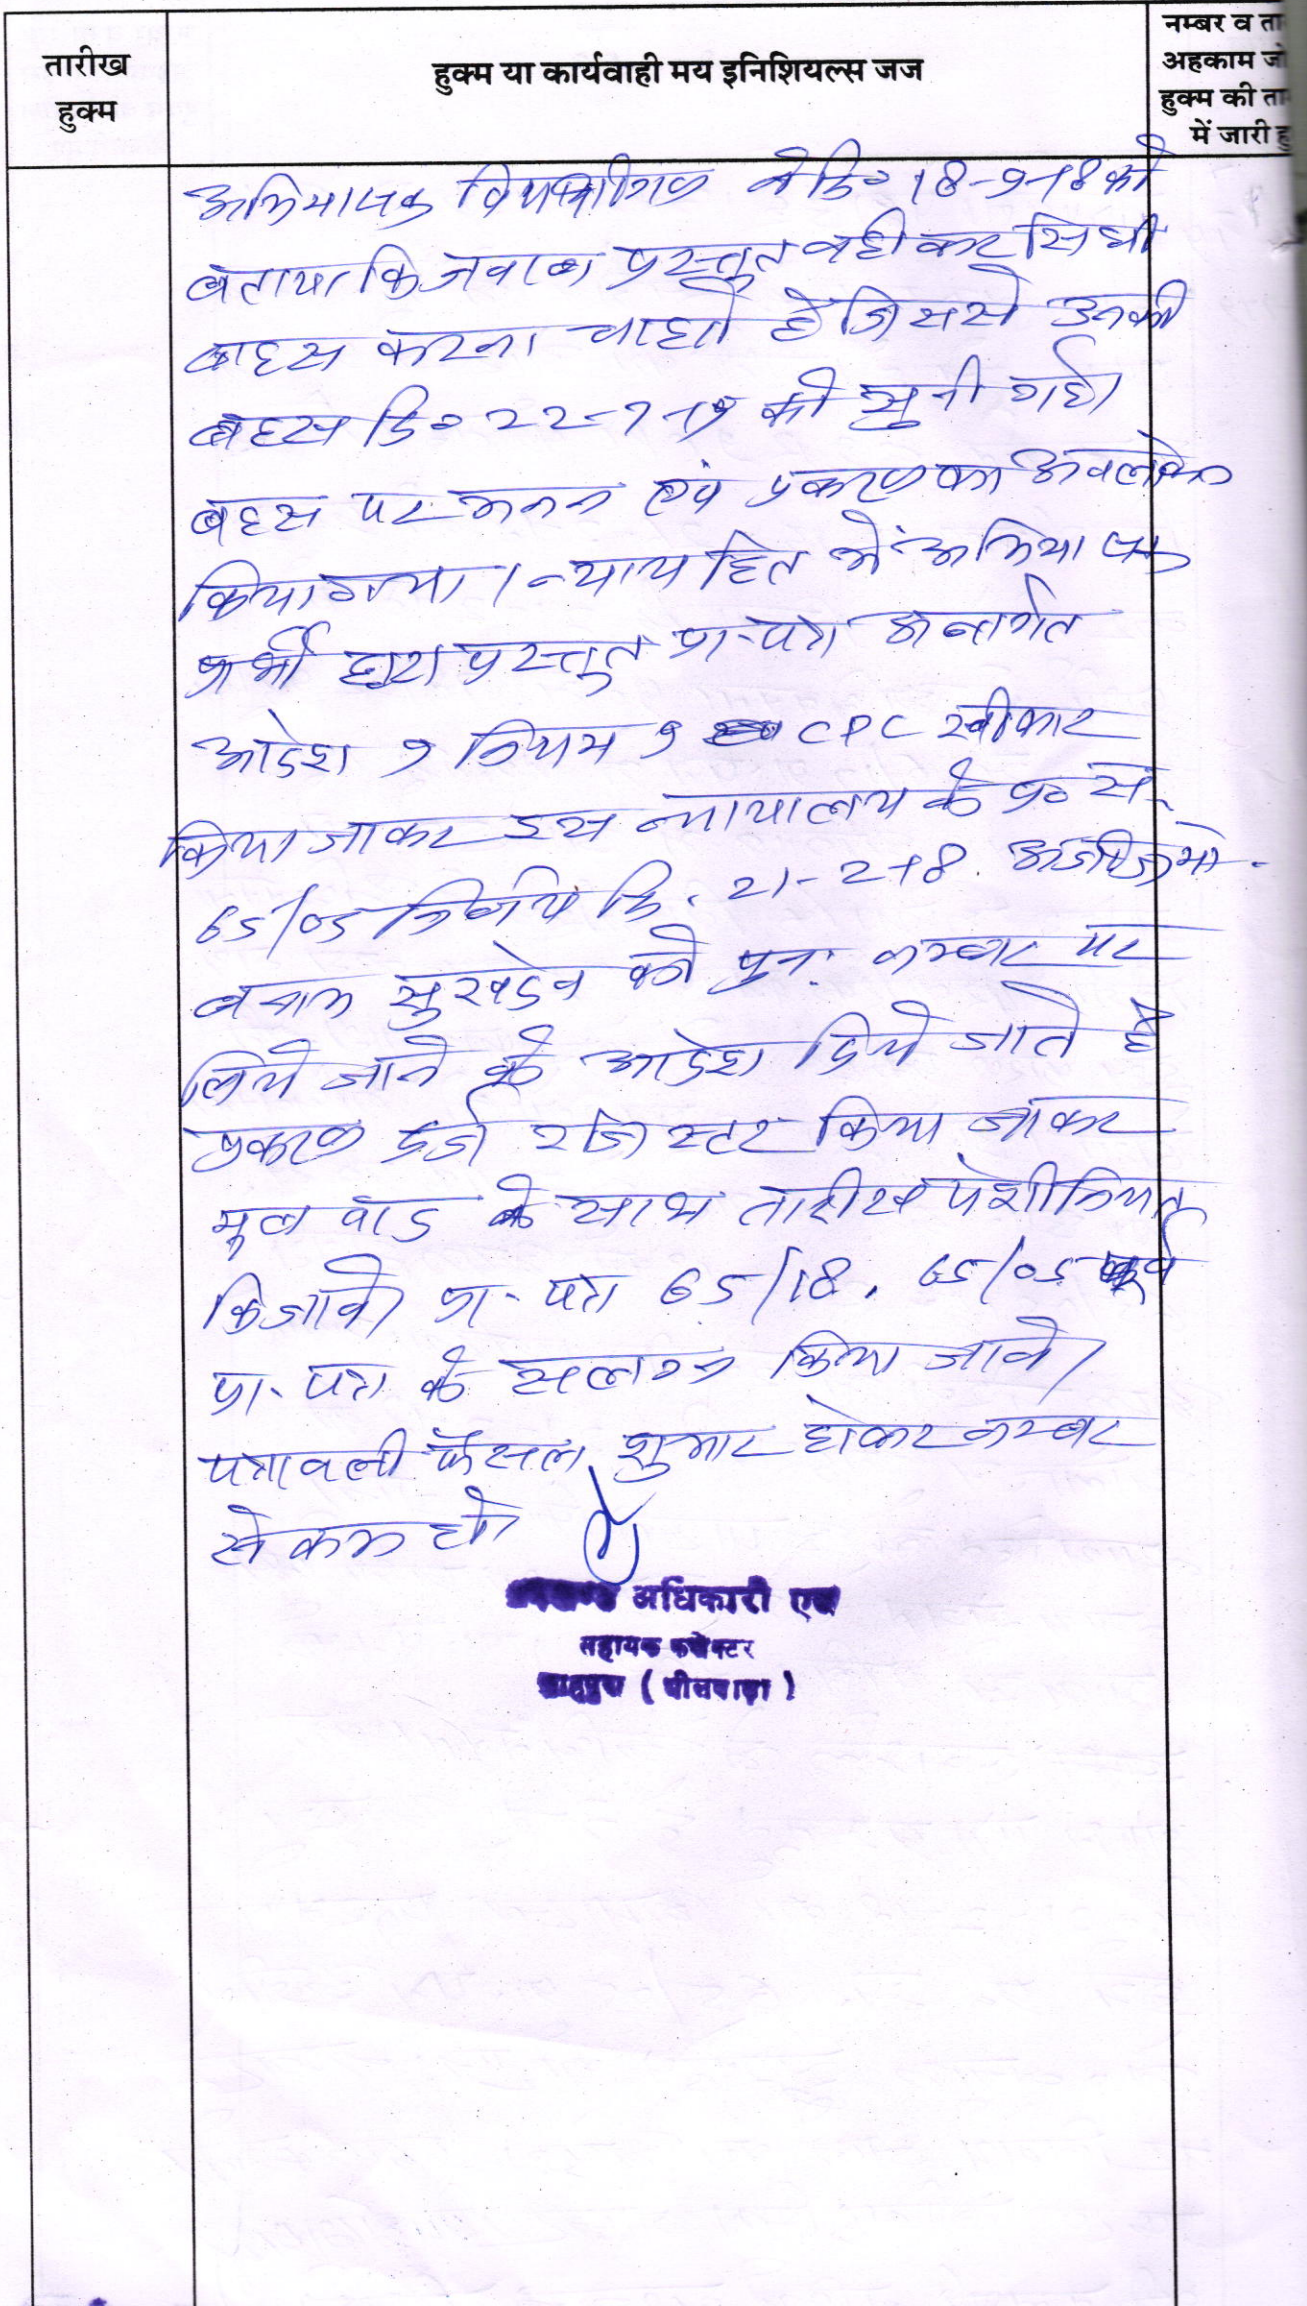 तारीख
हुक्म
हुक्म या कार्यवाही मय इनिशियल्स जज
नम्बर व ता
अहकाम जो
हुक्म की ता
में जारी हु
अभिभाषक विपक्षीगण ने दि० 18-9-18 को
बताया कि जवाब प्रस्तुत नही कर सिधी
बहस करना चाहते है जिससे उनकी
बहस दि० 22-7-19 को सुनी गई।
बहस पर मनन एवं प्रकरण का अवलोकन
किया गया। न्याय हित में अभिभाषक
प्रार्थी द्वारा प्रस्तुत प्रा-पत्र अन्तर्गत
आदेश 9 नियम 9 CPC स्वीकार
किया जाकर इस न्यायालय के प्र० सं.
65/05 निर्णय दि. 21-2-18
बनाम सुखदेव को पुन: नम्बर पर
लिये जाने के आदेश दिये जाते है
प्रकरण दर्ज रजिस्टर किया जाकर
मूल वाद के साथ तारीख पेशी नियत
कि जावे। प्रा-पत्र 65/18, 65/05 पूर्व
प्रा-पत्र के सलग्न किया जावे।
पत्रावली फैसल शुमार होकर नम्बर
से कम हो।
अधिकारी एवं
सहायक कलेक्टर
शाहपुरा ( भीलवाड़ा )